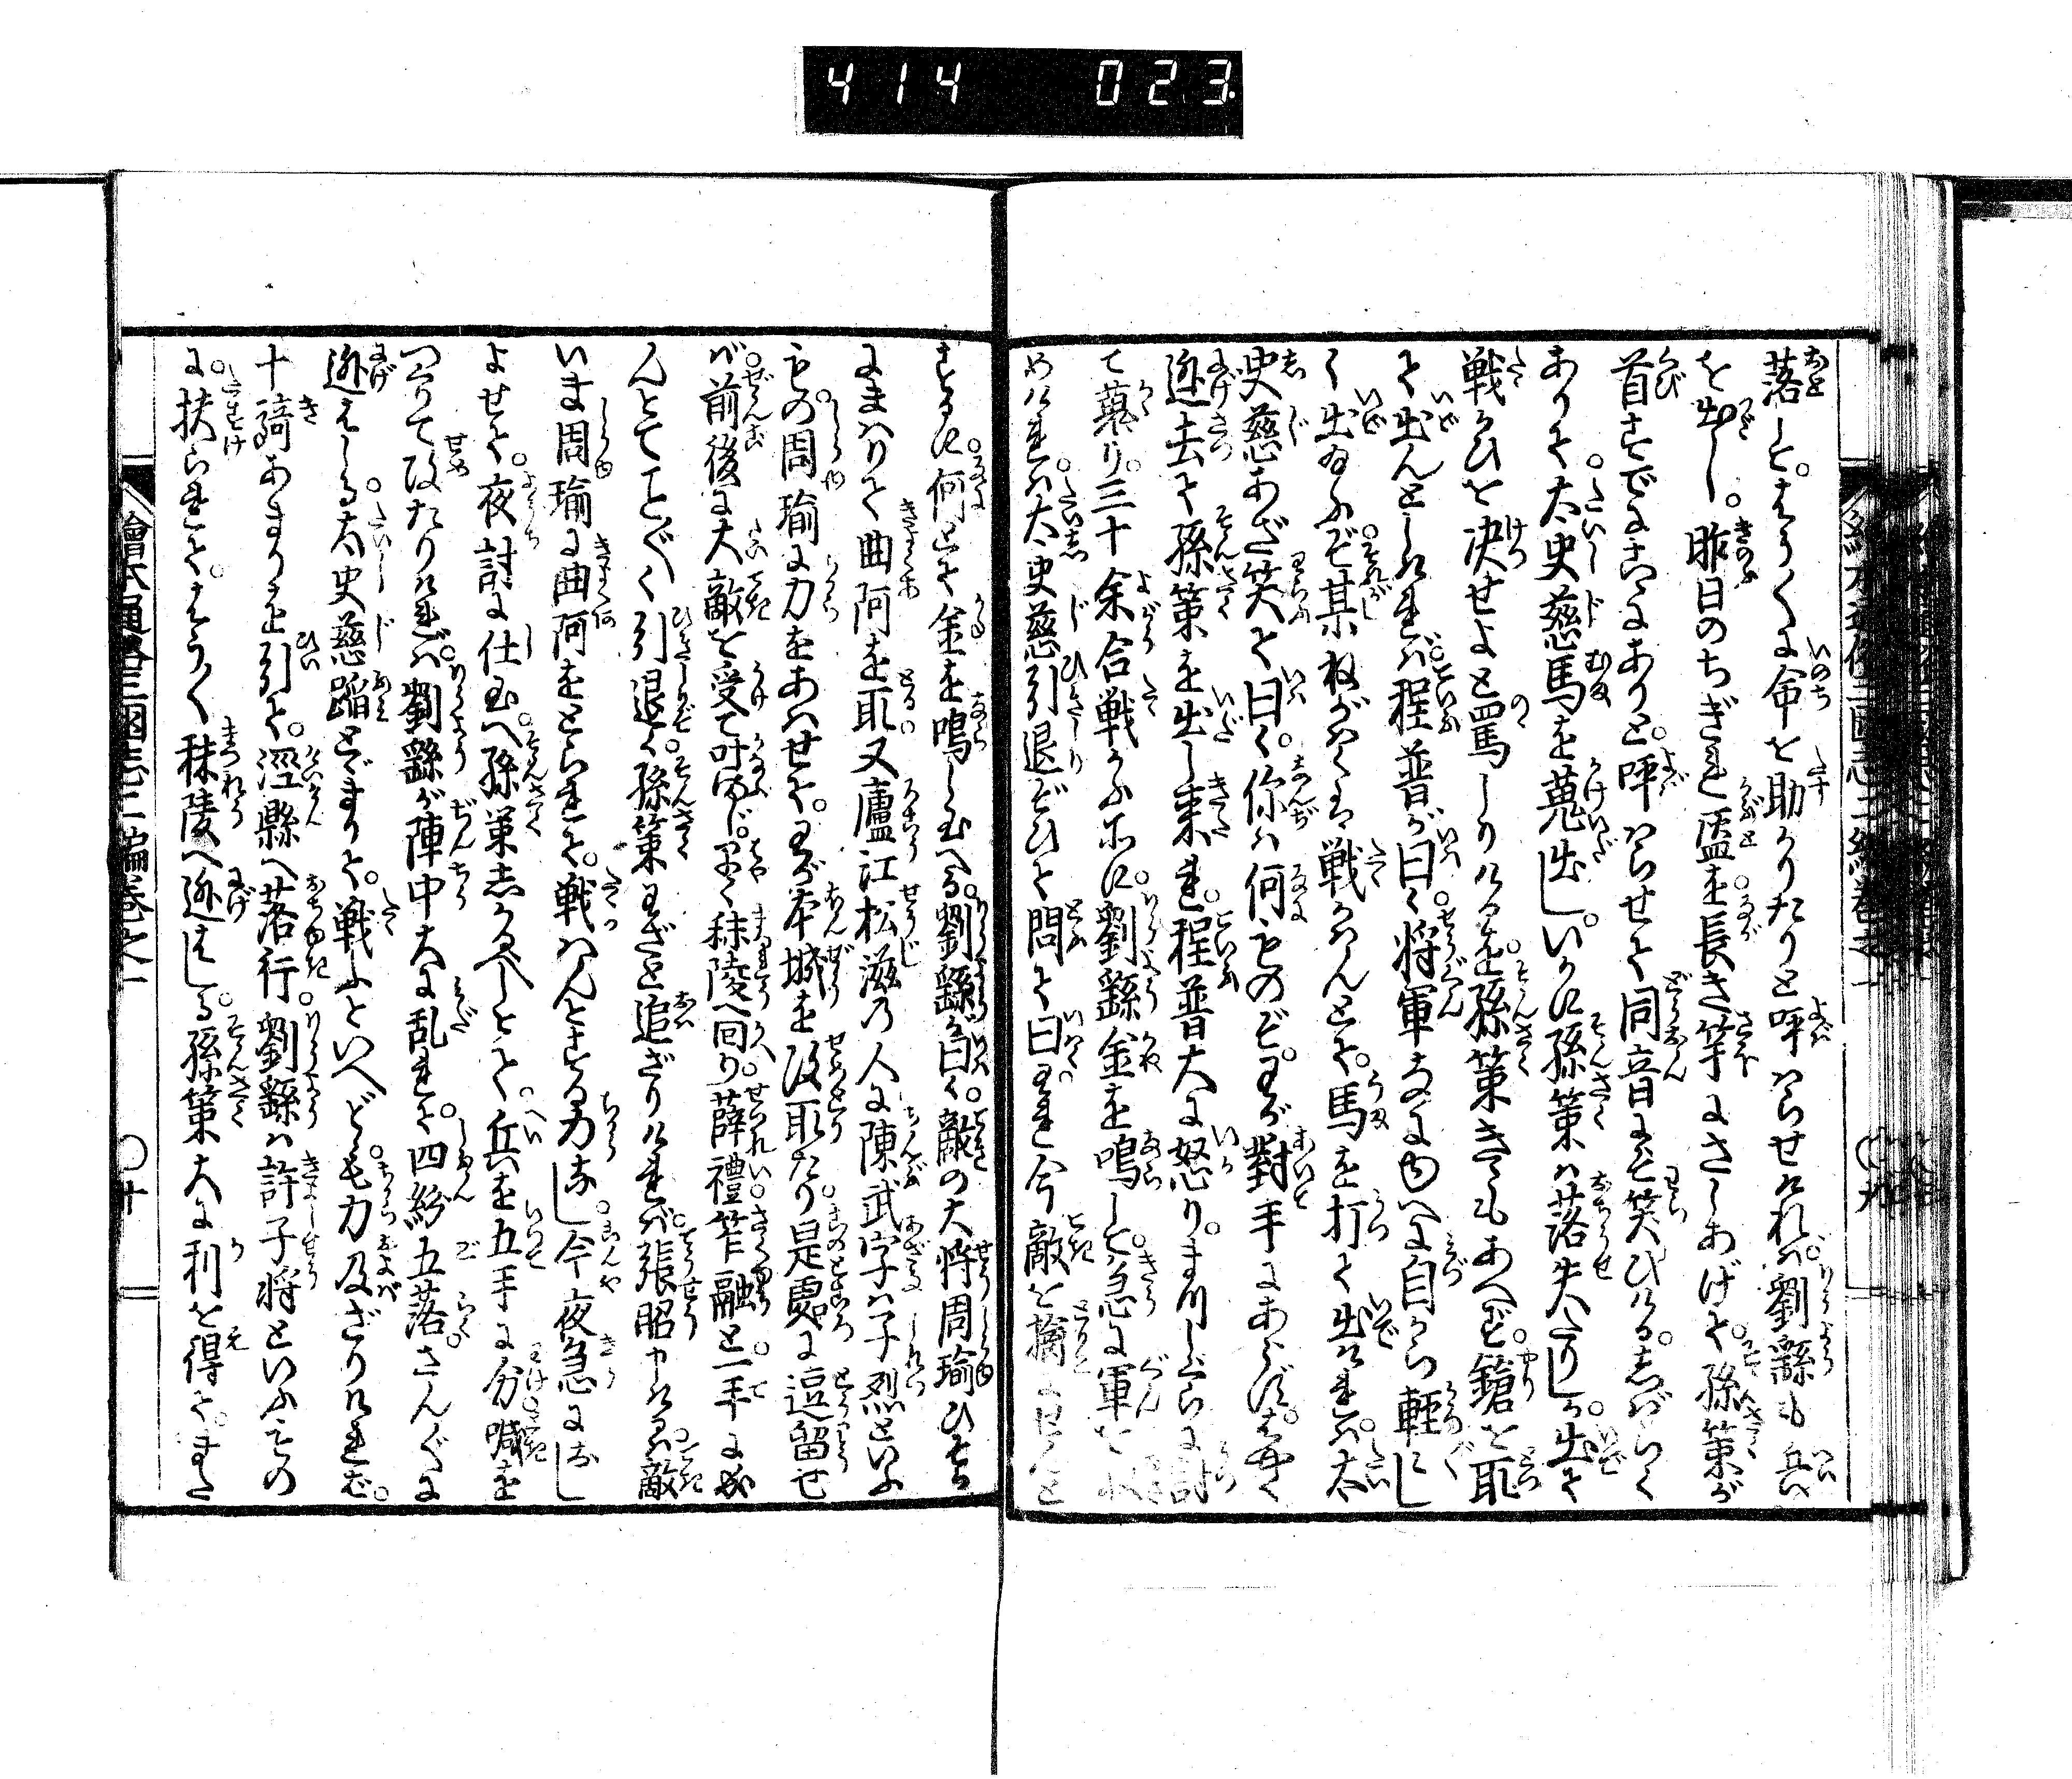 414 023
落して。はう〳〵に命を助かりたりと呼はらせければ。劉繇も兵
を出し。昨日のちぎれ盔を長き竿にさしあげて。孫策が
首すでにこゝにありと。呼はらせて同音にぞ笑ひける。しばらく
ありて太史慈馬を蒐出し。いかに孫策は落失たりしか。出て
戦ひを決せよと罵しりければ。孫策きゝもあへず。鎗を取
て出んとしければ。程普が曰く。将軍なんぞ自から軽〳〵し
く出玉ふぞ某ねがはくは戦かはんとて。馬を打て出ければ。太
史慈あざ笑て曰く。你は何ものぞ。わが對手にあらず。はやく
逃去て孫策を出し来れ。程普大に怒り。まつしぐらに討
て蒐り。三十余合戦かふ所に。劉繇金を鳴して。急に軍を收
めければ。太史慈引退ぞひて問て曰。われ今敵を擒にせんと
するに。何とて金を鳴し玉へる。劉繇が曰く。敵の大将周瑜ひそか
にまはりて曲阿を取。又廬江松滋の人に陳武字は子烈といふ
もの。周瑜に力をあはせて。わが本城を攻取たり。是処に逗留せ
ば。前後に大敵を受て叶ふまじ。早く秣陵へ回り。薛禮。笮融と一手にな
らんとてことごとく引退く。孫策わざと追ざりければ。張昭申けるは敵
いま周瑜に曲阿をとられて。戦はんとする力なし。今夜急におし
よせて。夜討に仕玉へ。孫策しかるべしとて。兵を五手に分。喊を
つくりて攻たりければ。劉繇が陣中大に乱れて。四紛五落。さんざんに
逃はしる太史慈蹈とゞまりて。戦ふといへども。力及ざりければ。
十騎あまりを引て。涇縣へ落行。劉繇は許子将といふもの
に。扶られて。はう〳〵秣陵へ逃はしる。孫策大に利を得て。また
繪本通俗三國志二編巻之一
〇九
〇十